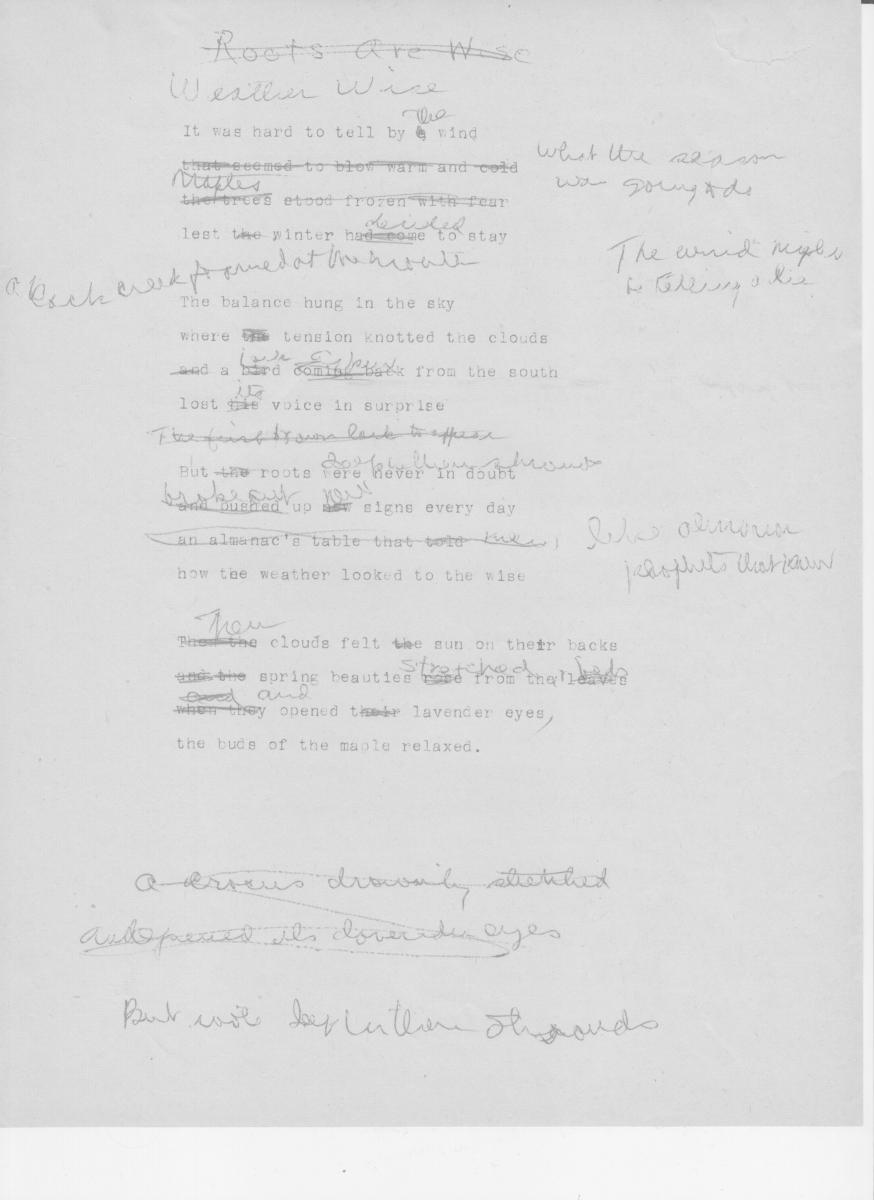 Roots Are Wise
Weather Wise
the
It was hard to tell by a wind
that seemed to blow warm and cold
What the season
was going to do
Maples
the trees stood frozen with fear
decided
lest the winter had come to stay
The wind might
be telling a lie
a Rock creek formed at the mouth
The balance hung in the sky
where the tension knotted the clouds
and a bird coming back from the south
its
lost his voice in surprise
The first brown lark to appear
deep in their shrouds
But the roots were never in doubt
broke out new
and pushed up new signs every day
an almanac's table that told
like
how the weather looked to the wise
prophets that knew
Then
Then the clouds felt the sun on their backs
stretched beds
and the spring beauties rose from the leaves
and and
when they opened their lavender eyes,
the buds of the maple relaxed.
a crocus drowsily stretched
and opened its lavender eyes
But deep in their shrouds